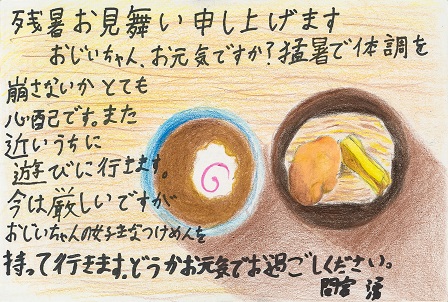 残暑お見舞い申し上げます
おじいちゃん、お元気ですか?猛暑で体調を
崩さないかとても
心配です。また
近いうちに
遊びに行きます。
今は厳しいですが
おじいちゃんの好きなつけめんを
持って行きます。どうかお元気でお過ごしください。